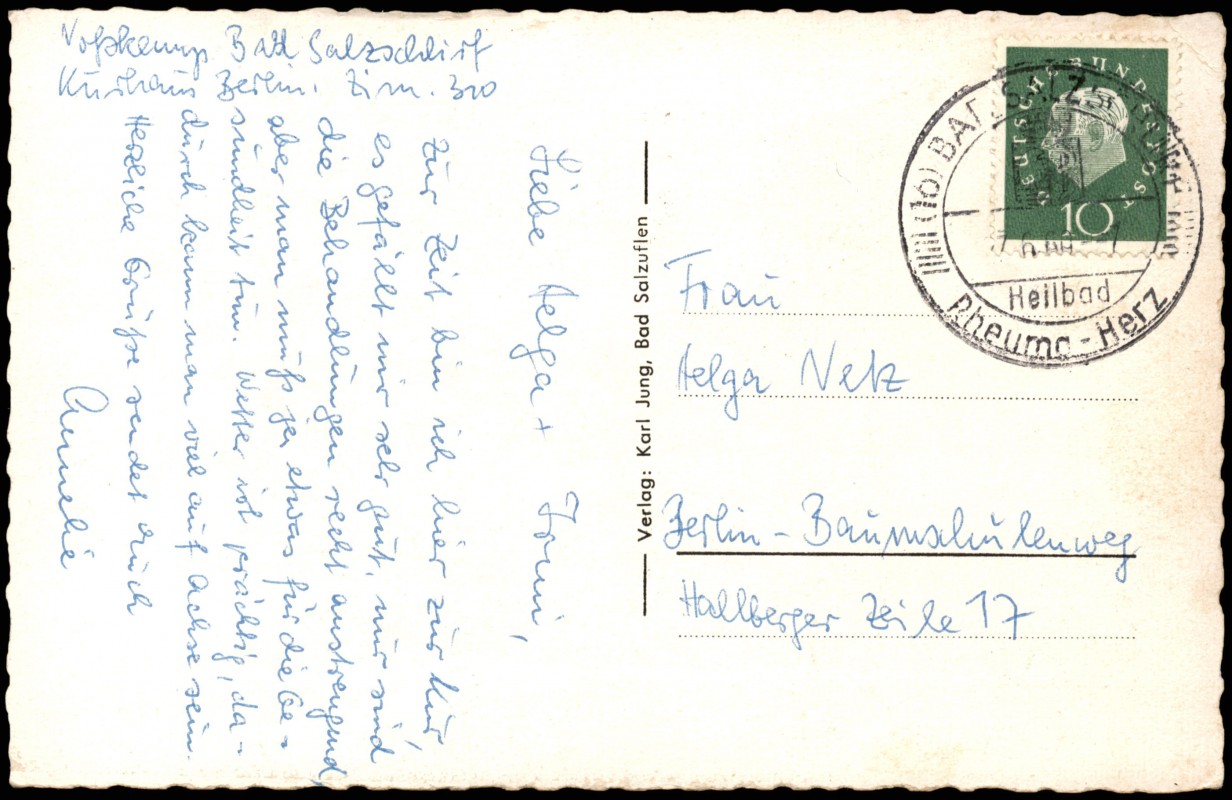 Voßkamp Bad Salzschlirf
Kurhaus Berlin. Zim. 310
Liebe Helga + Irmi,
zur Zeit bin ich hier zur Kur,
es gefällt mir sehr gut, nur sind
die Behandlungen recht anstrengend,
aber man muß ja etwas für die Ge-
sundheit tun. Wetter ist prächtig, da-
durch kann man viel auf Achse sein.
Herzliche Grüße sendet Euch
Annelie
Verlag: Karl Jung, Bad Salzuflen
DEUTSCHE BUNDESPOST
10
(16) BAD SALZSCHLIRF
Heilbad
Rheuma - Herz
Frau
Helga Netz
Berlin - Baumschulenweg
Hallberger Zeile 17